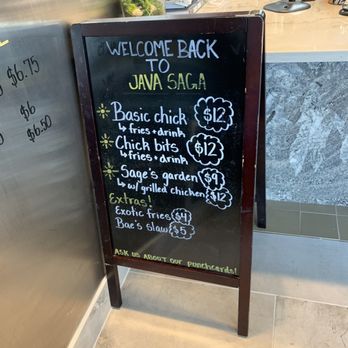 $6.75
$6
$6.50
WELCOME BACK
TO
JAVA SAGA
Basic chick $12
↳ fries + drink
Chick bits $12
↳ fries + drink
Sage's garden $9
↳ w/ grilled chicken $12
Extras!
Exotic fries $4
Bae's slaw $5
ASK US ABOUT OUR punchcards!